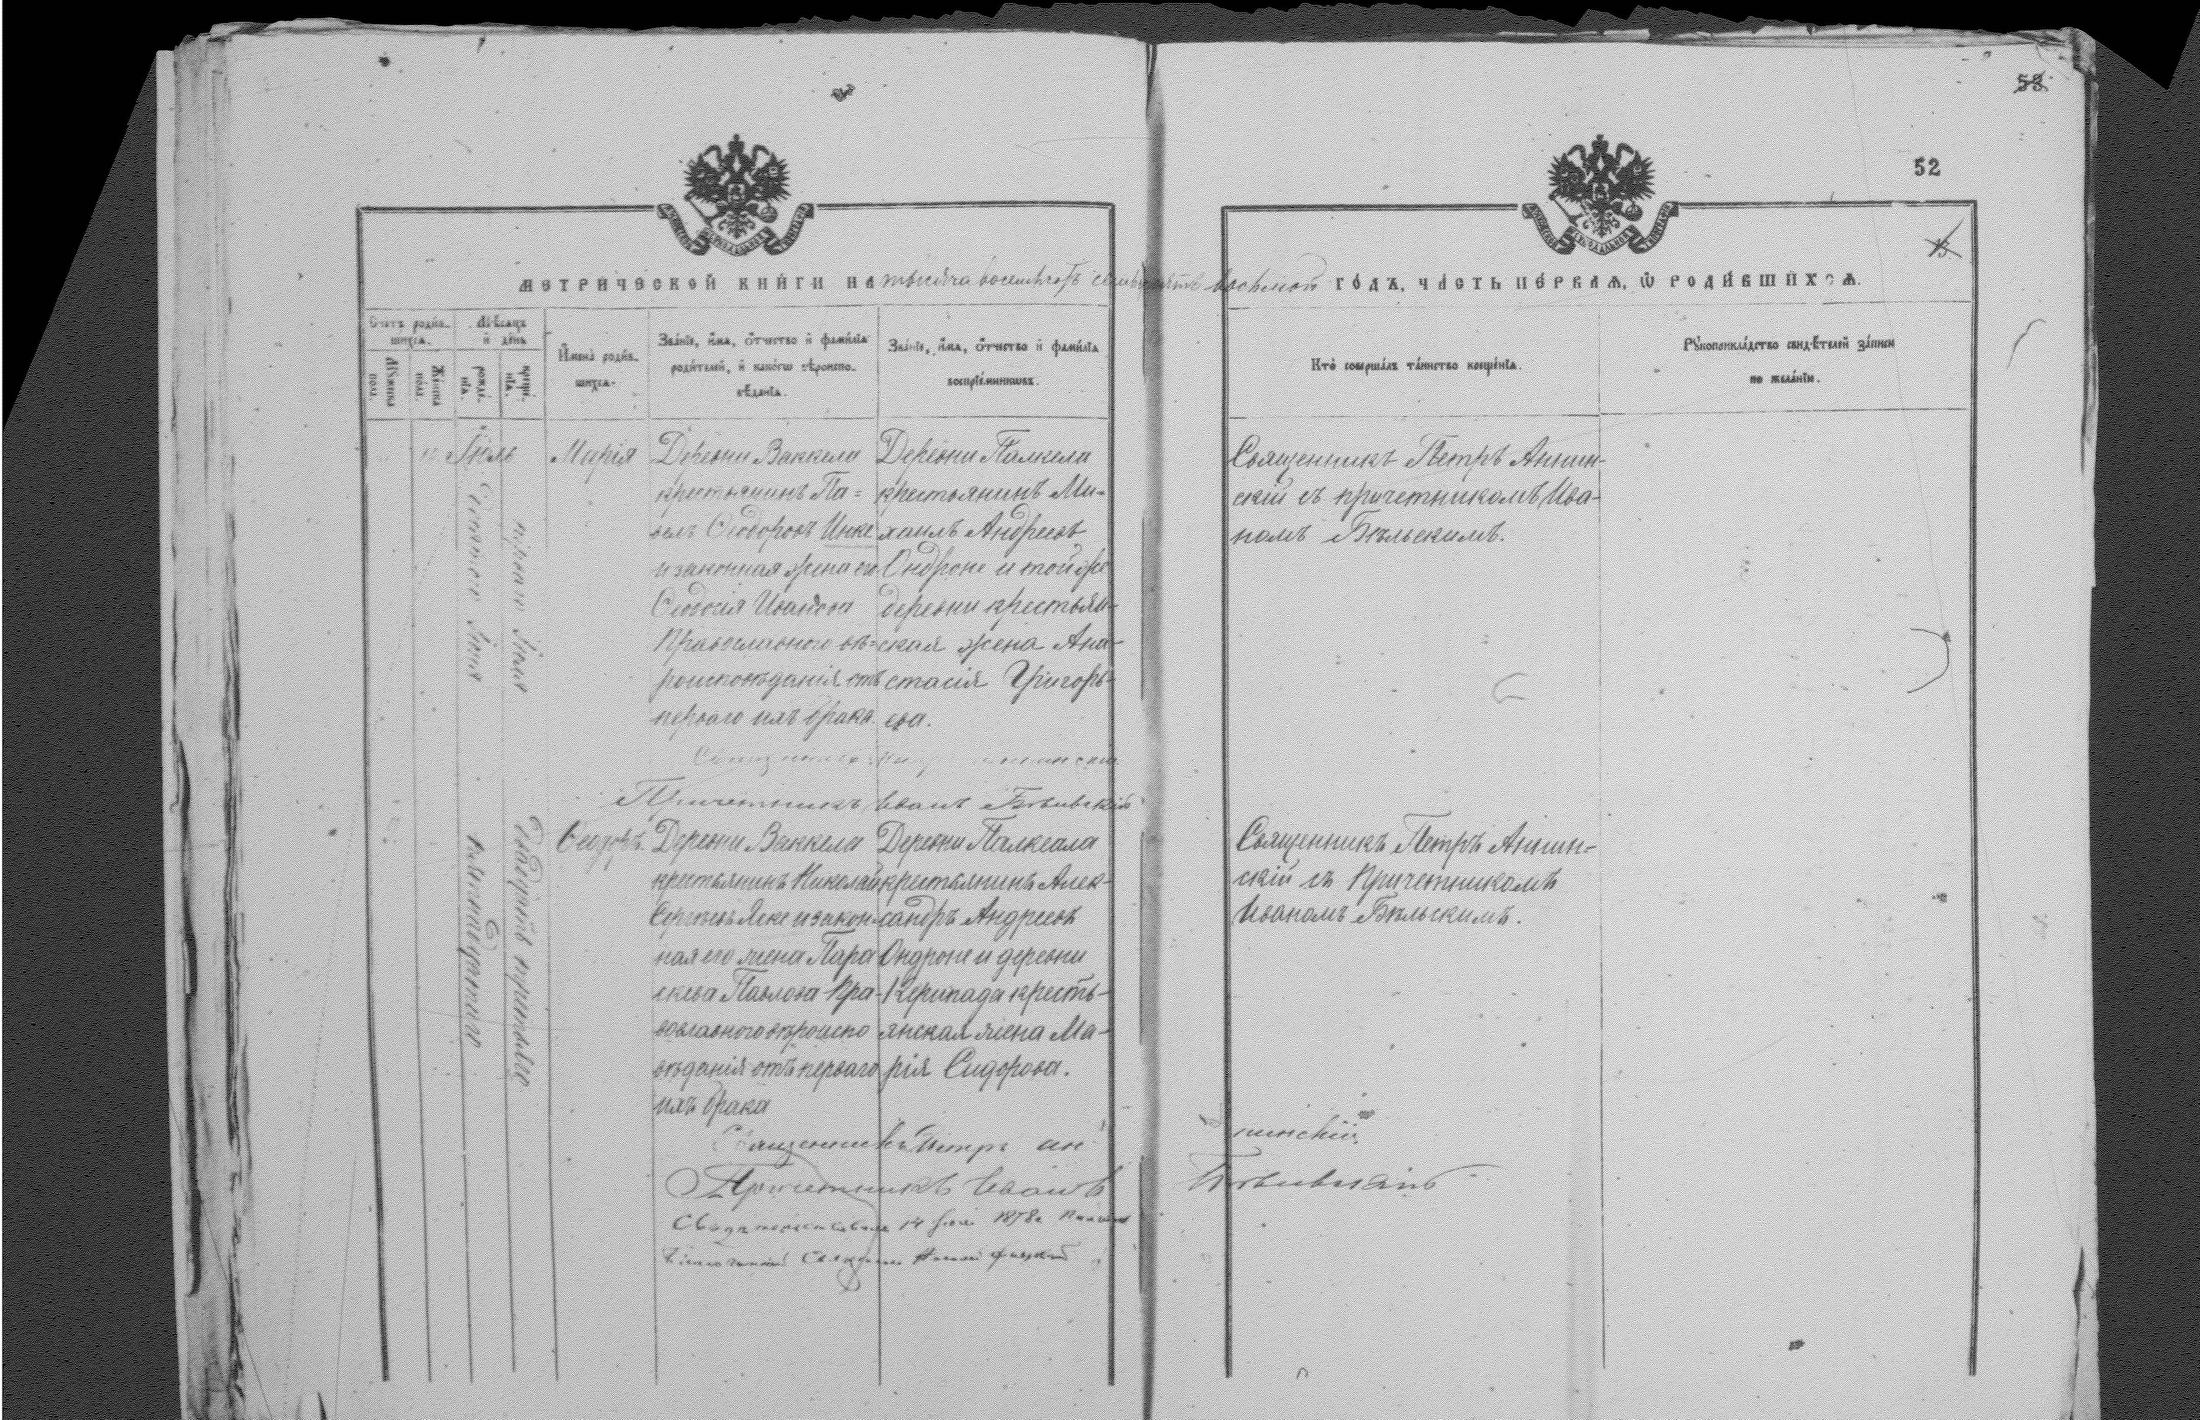 53
52
13
МЕТРИЧЕСКОЙ КНИГИ НА тысяча восемьсотъ семьдесятъ восьмой ГОДЪ, ЧАСТЬ ПЕРВАЯ, Ѡ РОДИВШИХСЯ.
Счетъ родив-
шихся.
Мужеска
пола.
Женска
пола.
Мѣсяцъ
и день
рожде-
нїя.
креще-
нїя.
Имена родив-
шихся.
Званїе, имя, отчество и фамилїя
родителей, и какогѡ вѣроиспо-
вѣданїя.
Званїе, имя, отчество и фамилїя
воспрїемниковъ.
Кто совершалъ таинство крещенїя.
Рукоприкладство свидѣтелей записи
по желанїю.
Іюль
Девятаго Іюня
перваго Іюля
Марія
Деревни Ваккела
крестьянинъ Па=
велъ Ѳеодоровъ Инке
и законная жена его
Ѳеодосія Иванова
Православнаго вѣ=
роисповѣданія отъ
перваго ихъ брака
Деревни Палкела
крестьянинъ Ми=
хаилъ Андреевъ
Ондроне и той же
деревни крестьян-
ская жена Ана-
стасія Григорь-
ева.
Священникъ Петръ Аннин-
скій съ причетникомъ Ива-
номъ Бѣльскимъ.
Причетникъ Іванъ Бѣльскій
пятнадцатаго
двадцать
Ѳеодоръ
Деревни Ваккела
крестьянинъ Николай
Сергѣевъ Яске и закон-
ная его жена Пара
скева Павлова Пра-
вославнаго вѣроиспо
вѣданія отъ перваго
ихъ брака
Деревни Палкеала
крестьянинъ Алек-
сандръ Андреевъ
Ондроне и деревни
Керипада кресть-
янская жена Ма-
рія Сидорова.
Священникъ Петръ Аннин-
скій съ Причетникомъ
Иваномъ Бѣльскимъ.
Священникъ Петръ Ан нинскій
Причетникъ Іванъ Бѣльскій
14 1878